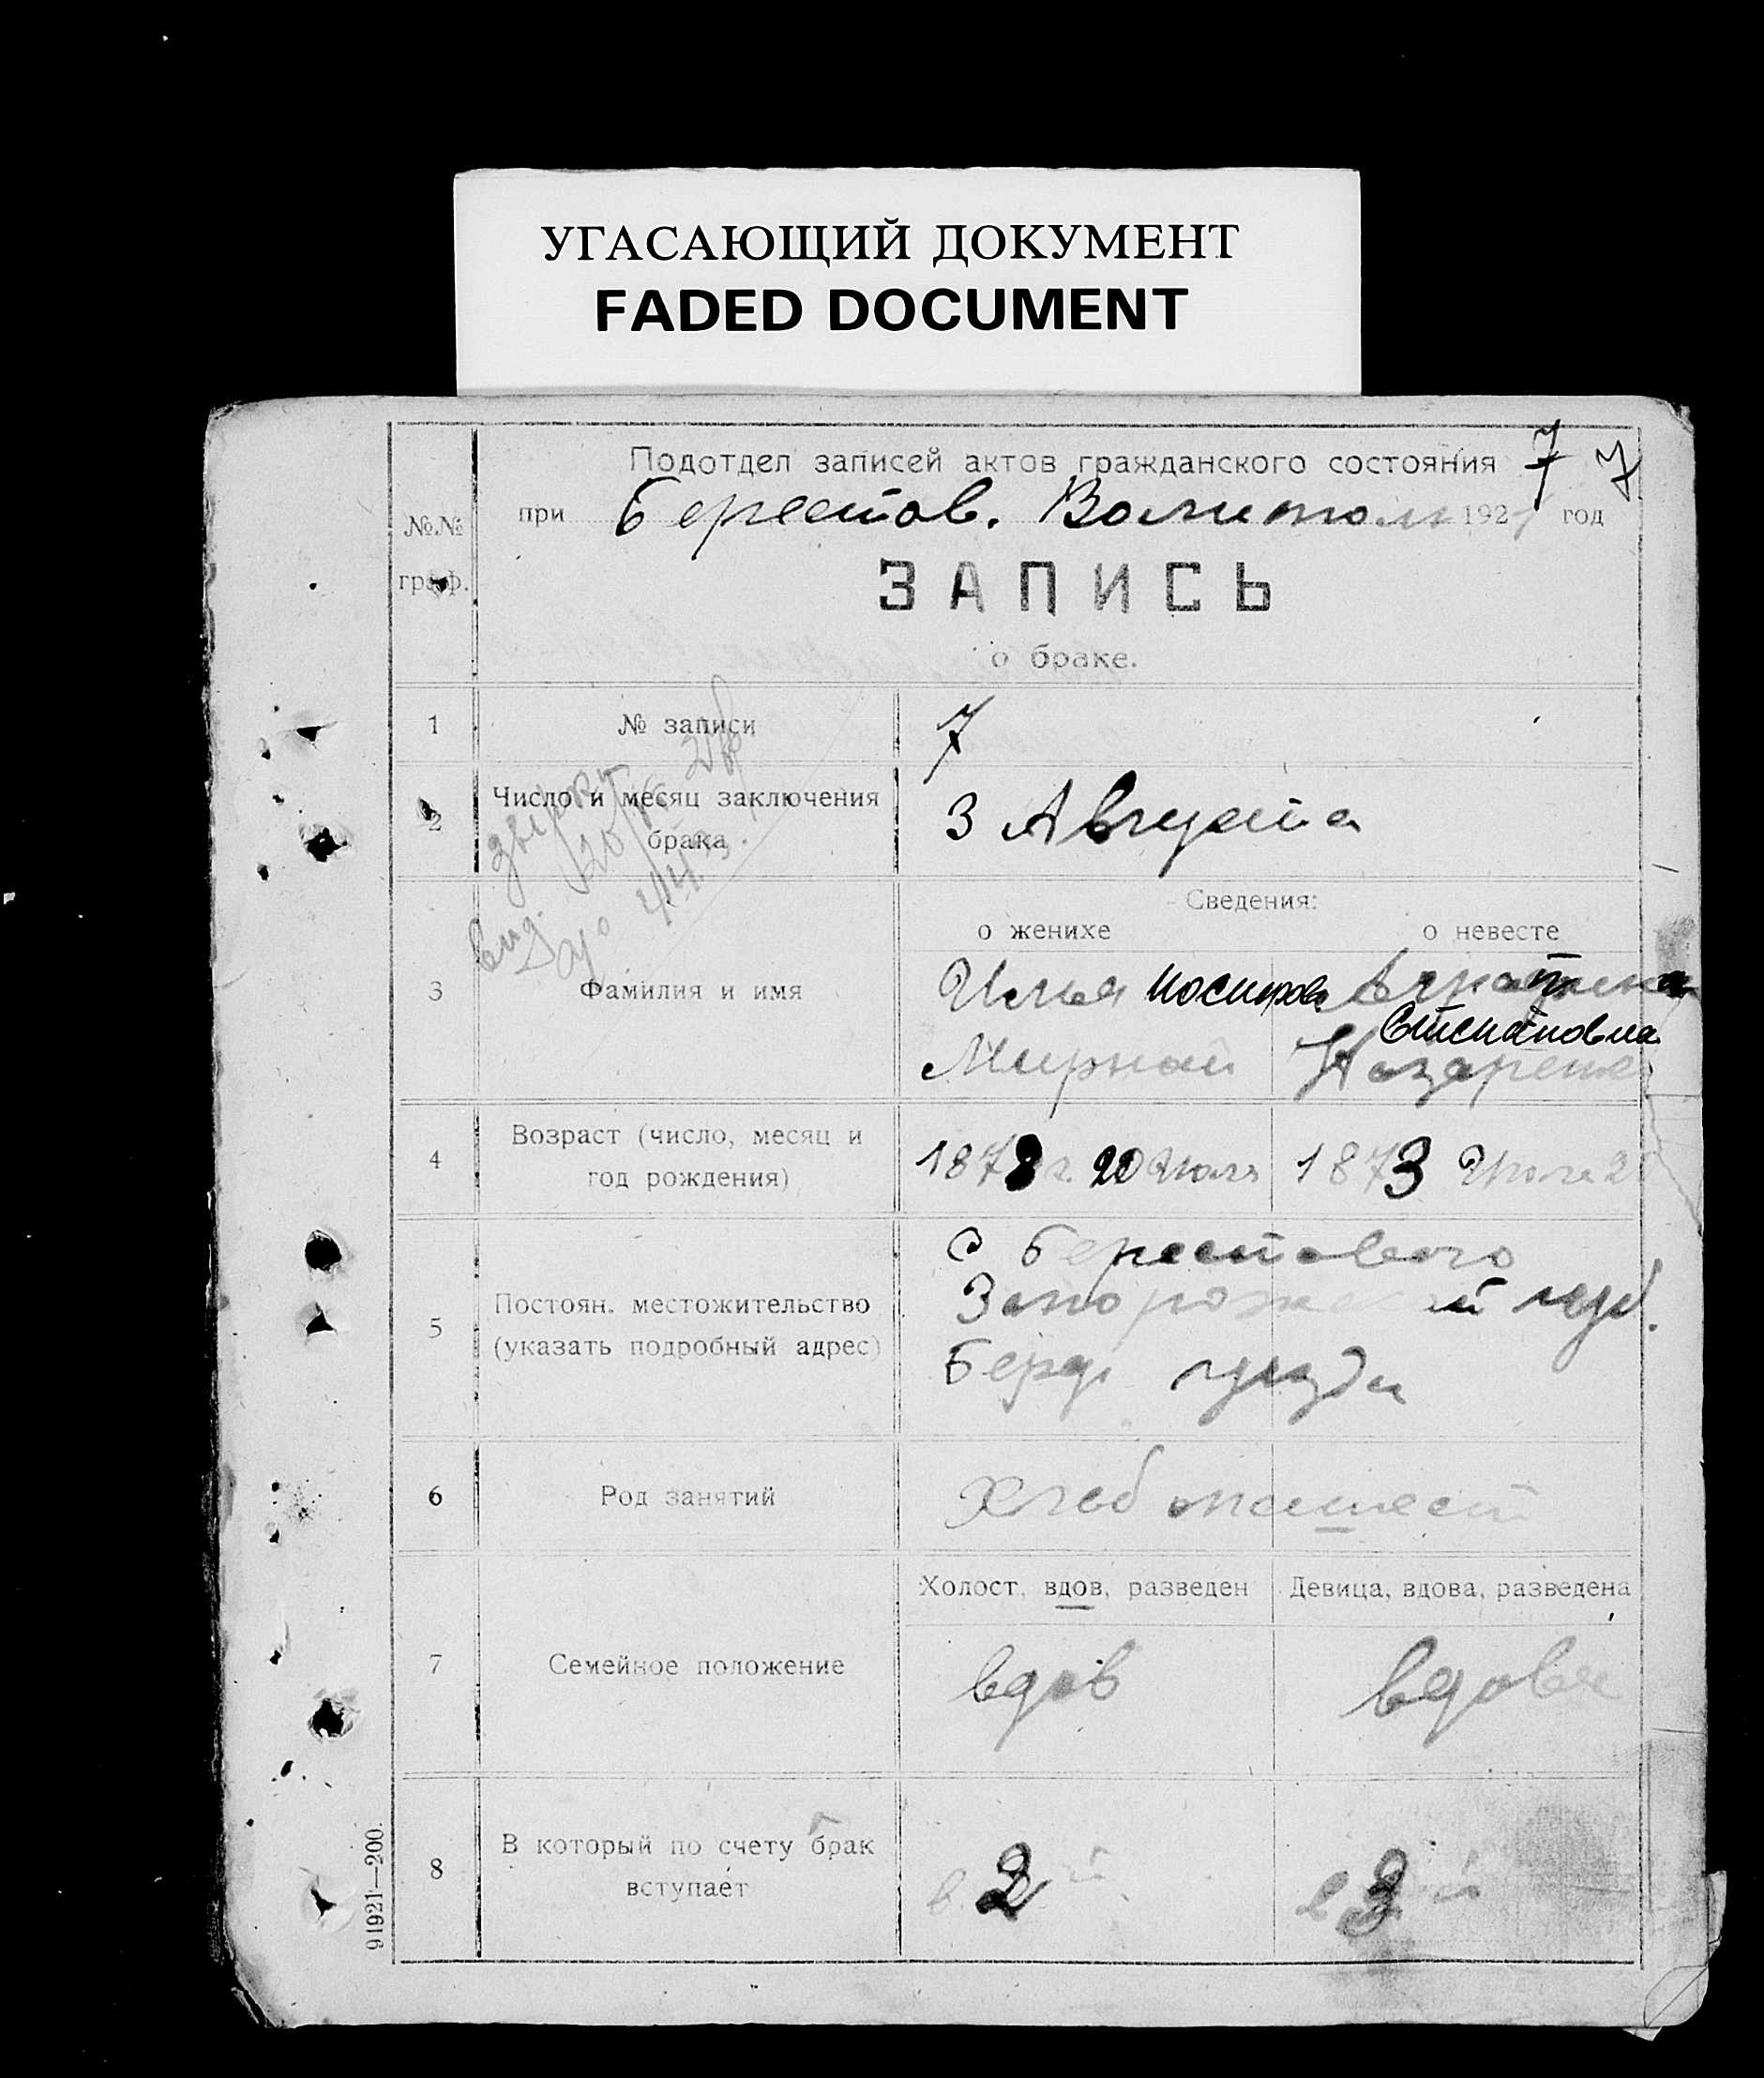 УГАСАЮЩИЙ ДОКУМЕНТ
FADED DOCUMENT
Подотдел записей актов гражданского состояния 7 7
при Берестов. 192 год
№.№ граф.
ЗАПИСЬ
о браке.
1 № записи 7
2 Число и месяц заключения брака 3 Августа
Сведения:
о женихе о невесте
3 Фамилия и имя
Илья
Степановна
Мирный Назаренко
4 Возраст (число, месяц и год рождения) 1873 г. 20 Июля 1873 Июля
5 Постоян. местожительство (указать подробный адрес)
с Берестового
губ.
Берд уезда
6 Род занятий Хлебопашест
7 Семейное положение
Холост, вдов, разведен Девица, вдова, разведена
вдов вдова
8 В который по счету брак вступает в 2й в 3й
91921—200.